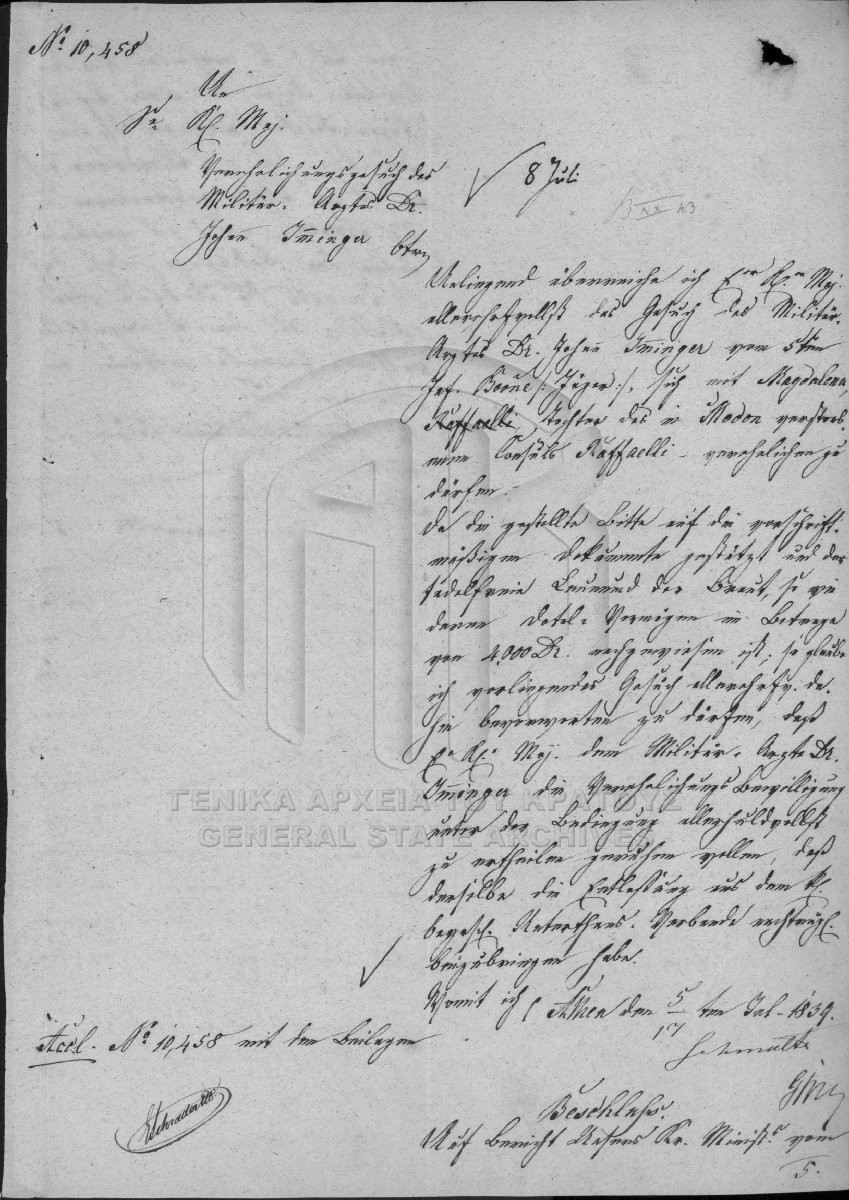 No 10,458
An
Se. Kgl. Maj.
Verehelichungsgesuch des
Militär-Arztes Dr.
Johann Imminger betr.
8 Juli
Anliegend überreiche ich Euer K. Maj.
allerehrfvollst das Gesuch des Militär-
Arztes Dr. Johann Imminger vom 5ten
Inf. Baone /: Jäger :/, sich mit Magdalena
Raffaelli, Tochter des in Modon verstorb
enen Consuls Raffaelli verehelichen zu
dürfen.
Da die gestellte Bitte auf die vorschrift-
mäßigen Dokumente gestützt und der
tadelfreie Leumund der Braut, so wie
deren Dotal-Vermögen im Betrage
von 4,000 Dr. nachgewiesen ist, so glaube
ich vorliegendes Gesuch allerehrfv. da
hin bevorworten zu dürfen, daß
Eu. K. Maj. dem Militär-Arzte Dr.
Imminger die Verehelichungs Bewilligung
unter der Bedingung allerhuldvollst
zu ertheilen geruhen wollen, daß
derselbe die Entlassung aus dem k.
bayerisch. Unterthans-Verbande
beizubringen habe.
Womit ich ( Athen den 5/17 ten Jul. 1839.
Schmaltz
Accl. No 10,458 mit den Beilagen
Beschluss.
Auf Bericht Unsers Kr. Minist. vom
5.
ΓΕΝΙΚΑ ΑΡΧΕΙΑ ΤΟΥ ΚΡΑΤΟΥΣ
GENERAL STATE ARCHIVES